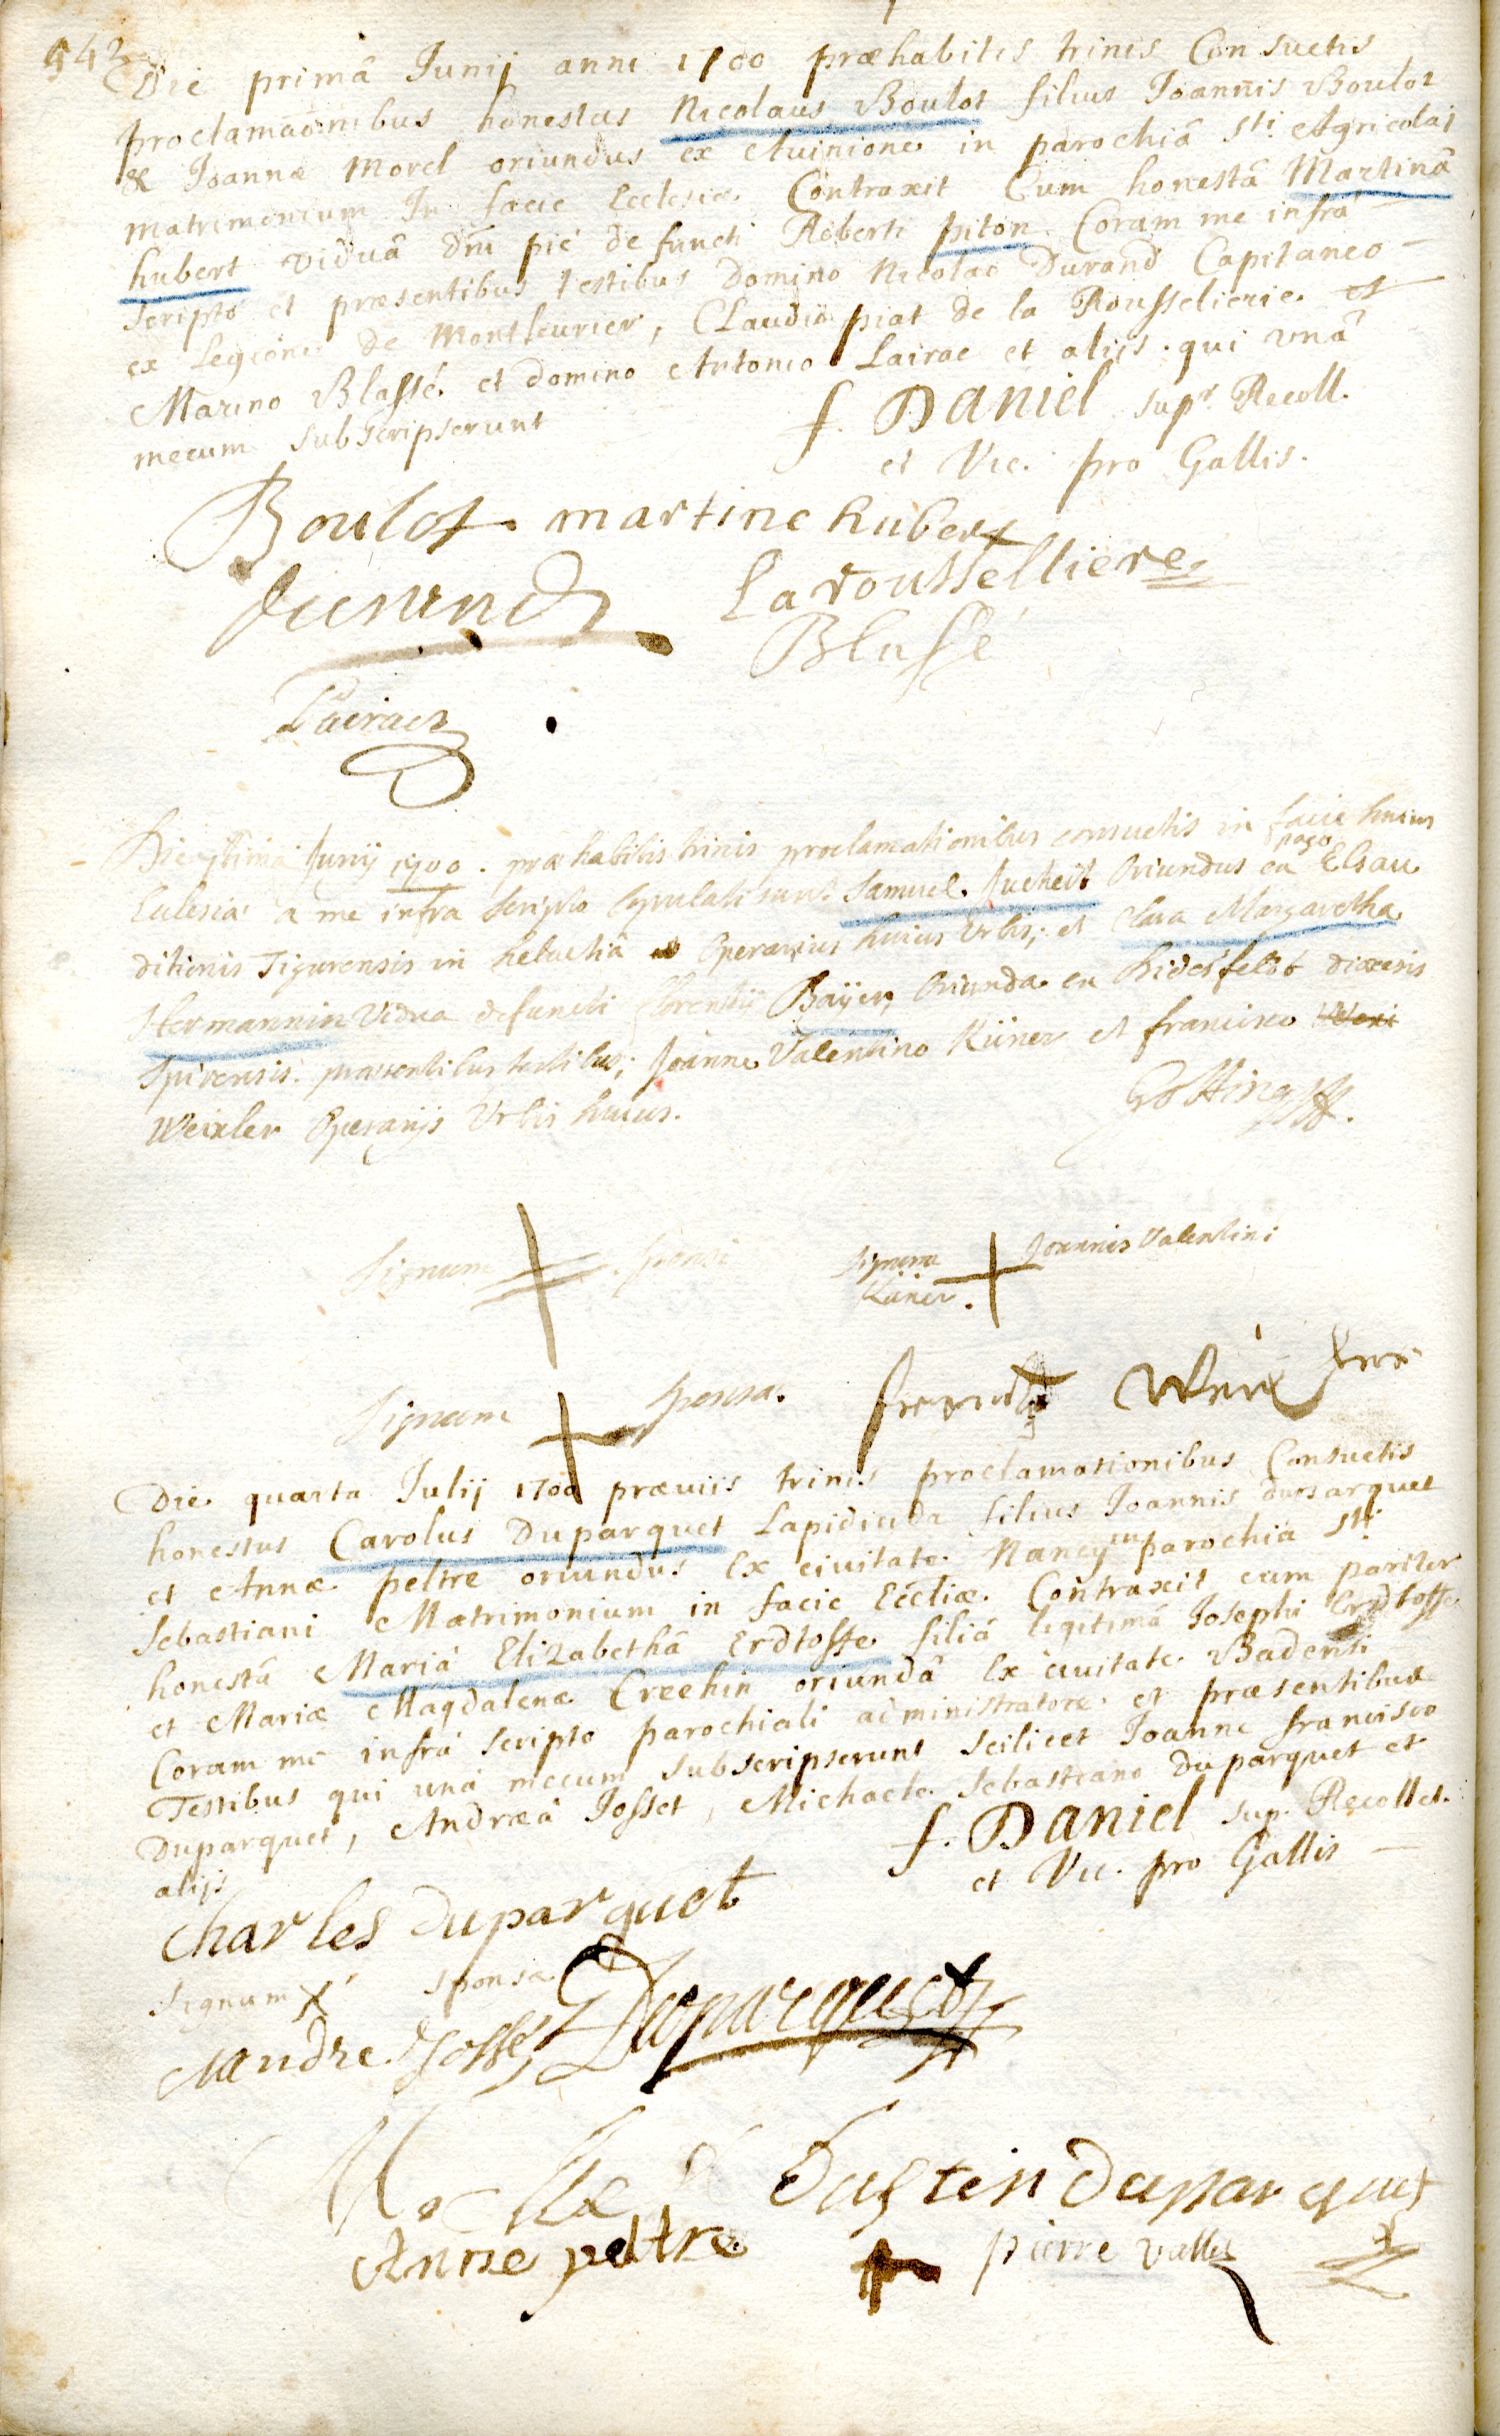 542
Die primâ Junij anni 1700 præhabitis trinis Consuetis
proclamaõnibus honestus Nicolaus Boulot filius Joannis Boulot
& Joannæ Morel oriundus ex Auinione in parochiâ Sti. Agricolaj
matrimonium In facie Ecclesiæ Contraxit Cum honestâ Martinâ
hubert viduâ dni piè defuncti Roberti piton Coram me infrà
scripto et præsentibus testibus Domino Nicolao Durand Capitaneo
ex Legione de Montleurier, Claudio piat de la Rousselierie et
Marino Blassé et domino Antonio Lairac et aliis qui vnâ
mecum subscripserunt
f. Daniel supr. Recoll.
et Vic. pro Gallis.
Boulot martine hubert
durand Larousselliere
Blassé
Lairac
Die septima Junij 1700. præhabitis trinis proclamationibus consuetis in facie huius
Eclesiæ a me infra scripto Copulati sunt Samuel Oriundus ex pago Elsau
ditionis Tigurensis in heluetiâ Operarius huius Urbis; et Clara Margaretha
Hermannin Vidua defuncti Bayer, Oriunda ex diæcesis
Spirensis. præsentibus testibus; Joanne Valentino Küner et francisco
Weixler Operarijs Urbis huius.
Signum sponsi Signum Joannis Valentini
Küner.
Signum sponsa.
Die quarta Julij 1700 præuiis trinis proclamationibus Consuetis
honestus Carolus Duparquet Lapidiuda filius Joannis duparquet
et Annæ peltre oriundus Ex ciuitate Nancy in parochia Sti
Sebastiani Matrimonium in facie Eccliæ Contraxit cum pariter
honestâ Mariâ Elizabethâ Erdtosse filiâ legitimâ Josephi Erdtosse
et Mariæ Magdalenæ Creehin oriundâ Ex ciuitate Badensi
Coram me infrà scripto parochiali administratore et præsentibus
Testibus qui unà mecum subscripserunt scilicet Joanne francisco
Duparquet, Andræâ Josset, Michaele Sebastiano duparquet et
alijs
f. Daniel sup. Recollet.
et Vic. pro Gallis
Charles duparquet
Signum X sponsæ Duparquet
Andre Jossé
Bastien duparquet
Anne peltre pierre vallet